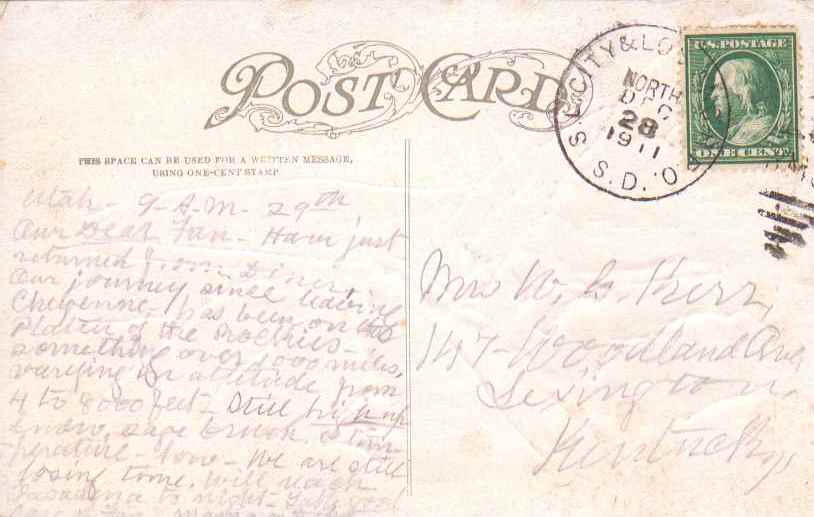 POST CARD
THIS SPACE CAN BE USED FOR A WRITTEN MESSAGE,
USING ONE-CENT STAMP
S.L. CITY & LO
NORTH
DEC
28
1911
S.D.
U.S. POSTAGE
ONE CENT
Utah - 9-A-M- 29th
Our Dear Fan - Have just
returned from Diner.
Our journey since leaving
Cheyenne - has been on
of the Rockies -
something over 1000 miles,
varying in altitude from
4 to 8000 feet - Still high up
snow, sage brush, & tem-
perature - low - We are still
losing time, will reach
Pasadena to night -
Mrs W. G. Kerr,
147 - Woodland Ave
Lexington,
Kentucky,